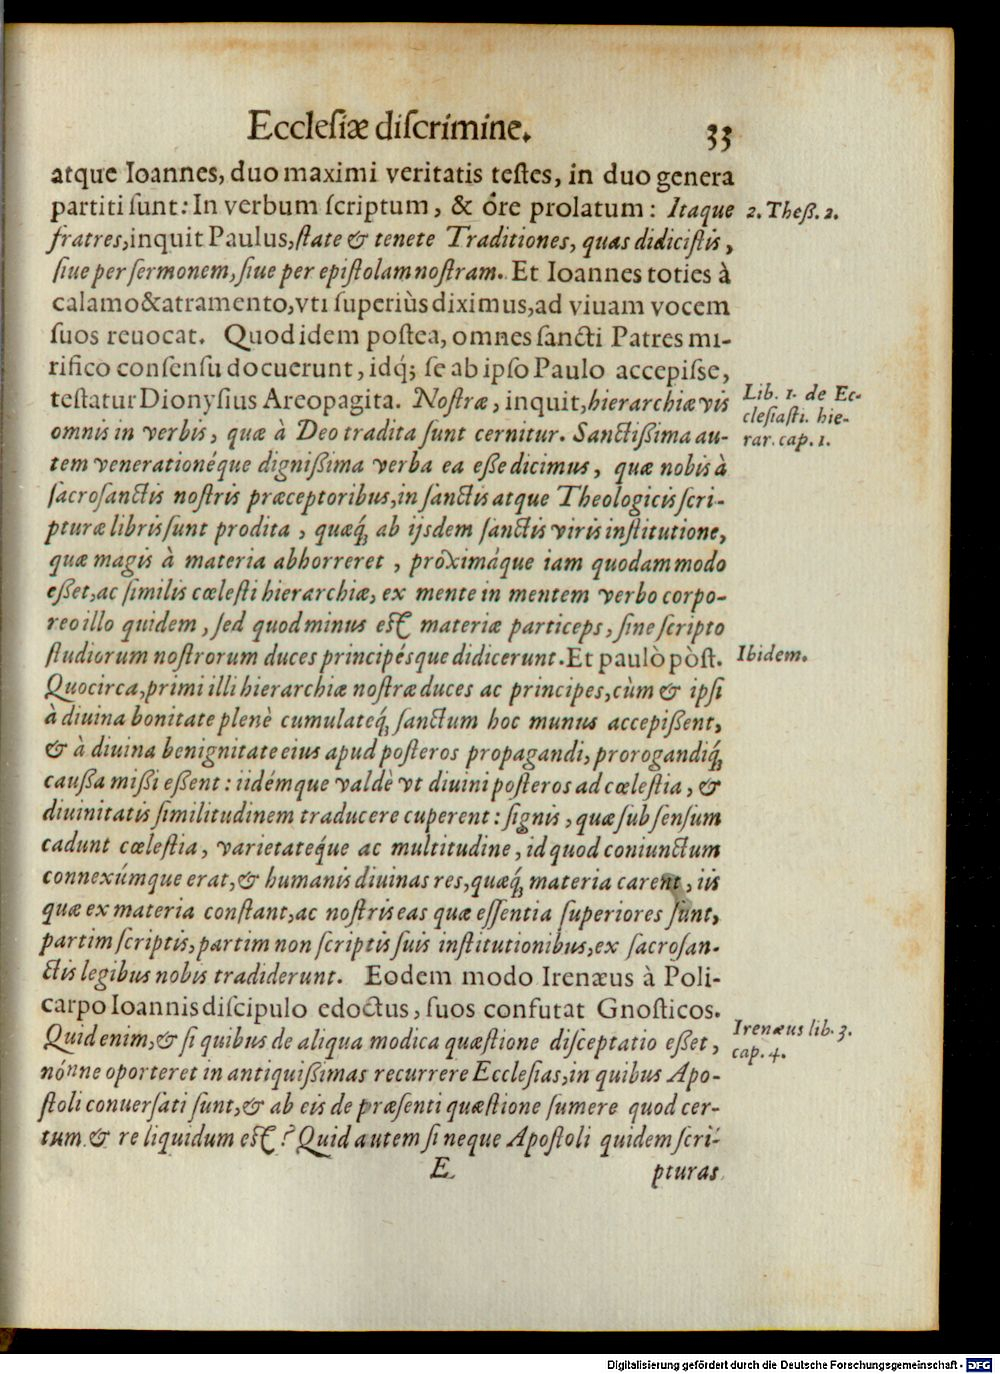 Ecclesiæ diſcrimine. 33
atque Ioannes, duo maximi veritatis teſtes, in duo genera
partiti ſunt: In verbum ſcriptum, & ôre prolatum: Itaque
2. Theß. 2.
fratres, inquit Paulus, ſtate & tenete Traditiones, quas didiciſtis,
ſiue per ſermonem, ſiue per epiſtolam noſtram. Et Ioannes toties à
calamo & atramento, vti ſuperiùs diximus, ad viuam vocem
ſuos reuocat. Quod idem poſtea, omnes ſancti Patres mi-
rifico conſenſu docuerunt, idq́; ſe ab ipſo Paulo accepiſſe,
teſtatur Dionyſius Areopagita. Noſtræ, inquit, hierarchiæ vis
Lib. 1. de Ec-
cleſiaſti. hie-
rar. cap. 1.
omnis in verbis, quæ à Deo tradita ſunt cernitur. Sanctißima au-
tem venerationéque dignißima verba ea eße dicimus, quæ nobis à
ſacroſanctis noſtris præceptoribus, in ſanctis atque Theologicis ſcri-
pturæ libris ſunt prodita, quæq́ꝫ ab ijsdem ſanctis viris inſtitutione,
quæ magis à materia abhorreret, próximáque iam quodammodo
eßet, ac ſimilis cœleſti hierarchiæ, ex mente in mentem verbo corpo-
reo illo quidem, ſed quod minus eſt materiæ particeps, ſine ſcripto
ſtudiorum noſtrorum duces principésque didicerunt. Et paulò pòſt.
Ibidem.
Quocirca, primi illi hierarchiæ noſtræ duces ac principes, cùm & ipſi
à diuina bonitate plenè cumulateq́ꝫ ſanctum hoc munus accepißent,
& à diuina benignitate eius apud poſteros propagandi, prorogandiq́ꝫ
cauſſa mißi eßent: iidémque valdè vt diuini poſteros ad cœleſtia, &
diuinitatis ſimilitudinem traducere cuperent: ſignis, quæ ſub ſenſum
cadunt cœleſtia, varietatéque ac multitudine, id quod coniunctum
connexúmque erat, & humanis diuinas res, quæq́ꝫ materia carent, iis
quæ ex materia conſtant, ac noſtris eas quæ eſſentia ſuperiores ſunt,
partim ſcriptis, partim non ſcriptis ſuis inſtitutionibus, ex ſacroſan-
ctis legibus nobis tradiderunt. Eodem modo Irenæus à Poli-
carpo Ioannis diſcipulo edoctus, ſuos confutat Gnoſticos.
Quid enim, & ſi quibus de aliqua modica quæſtione diſceptatio eßet,
Irenæus lib. 3.
cap. 4.
nónne oporteret in antiquißimas recurrere Eccleſias, in quibus Apo-
ſtoli conuerſati ſunt, & ab eis de præſenti quæſtione ſumere quod cer-
tum & re liquidum eſt? Quid autem ſi neque Apoſtoli quidem ſcri-
E pturas
Digitalisierung gefördert durch die Deutsche Forschungsgemeinschaft - DFG